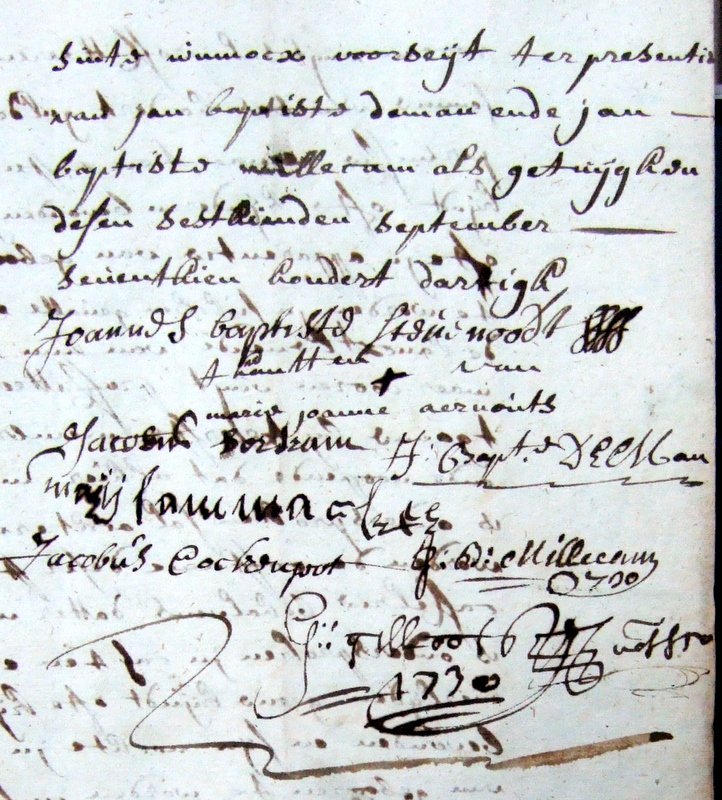 sinte winnocx voorseijt ter presentie
van jan baptiste deman ende jan
baptiste millecam als getuijghen
desen sesthienden september
seventhien hondert dartigh
Joannes baptiste Stevenoodt
thandt teecken van
marie joanne aernouts
Jacobus Bertram J: Bapt.e DEMan
Jacobus Cockenpoot J: B: Millecam
1730
1730